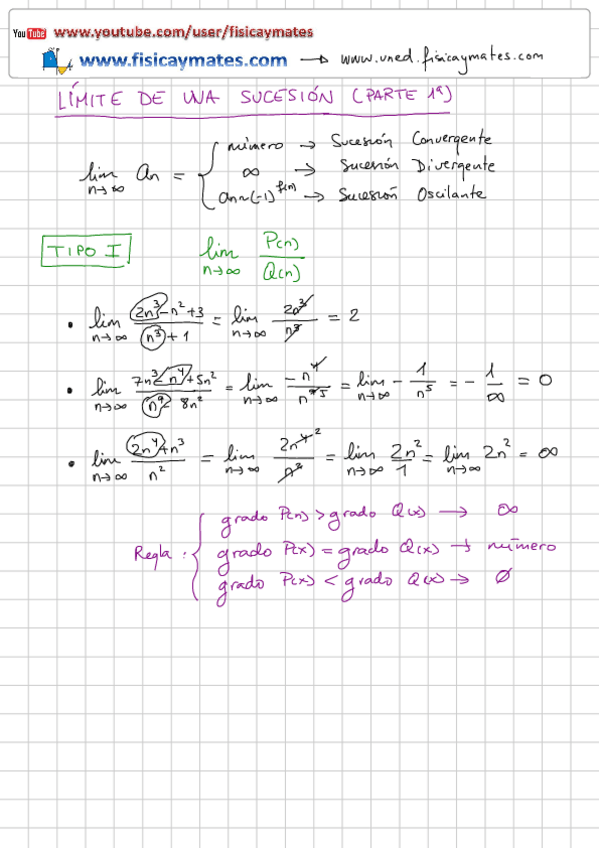 You Tube www.youtube.com/user/fisicaymates
www.fisicaymates.com → www.uned.fisicaymates.com
LÍMITE DE UNA SUCESIÓN (PARTE 1ª)
lim n→∞ an = { número → Sucesión Convergente
∞ → Sucesión Divergente
an~(-1)^f(n) → Sucesión Oscilante
TIPO I lim n→∞ P(n)/Q(n)
• lim n→∞ (2n³-n²+3)/(n³+1) = lim n→∞ 2n³/n³ = 2
• lim n→∞ (7n³-n⁴+5n²)/(n⁹-8n²) = lim n→∞ -n⁴/n⁹ ⁵ = lim n→∞ - 1/n⁵ = - 1/∞ = 0
• lim n→∞ (2n⁴+n³)/n² = lim n→∞ 2n⁴ ²/n² = lim n→∞ 2n²/1 = lim n→∞ 2n² = ∞
Regla: { grado P(n) > grado Q(x) → ∞
grado P(x) = grado Q(x) → número
grado P(x) < grado Q(x) → 0